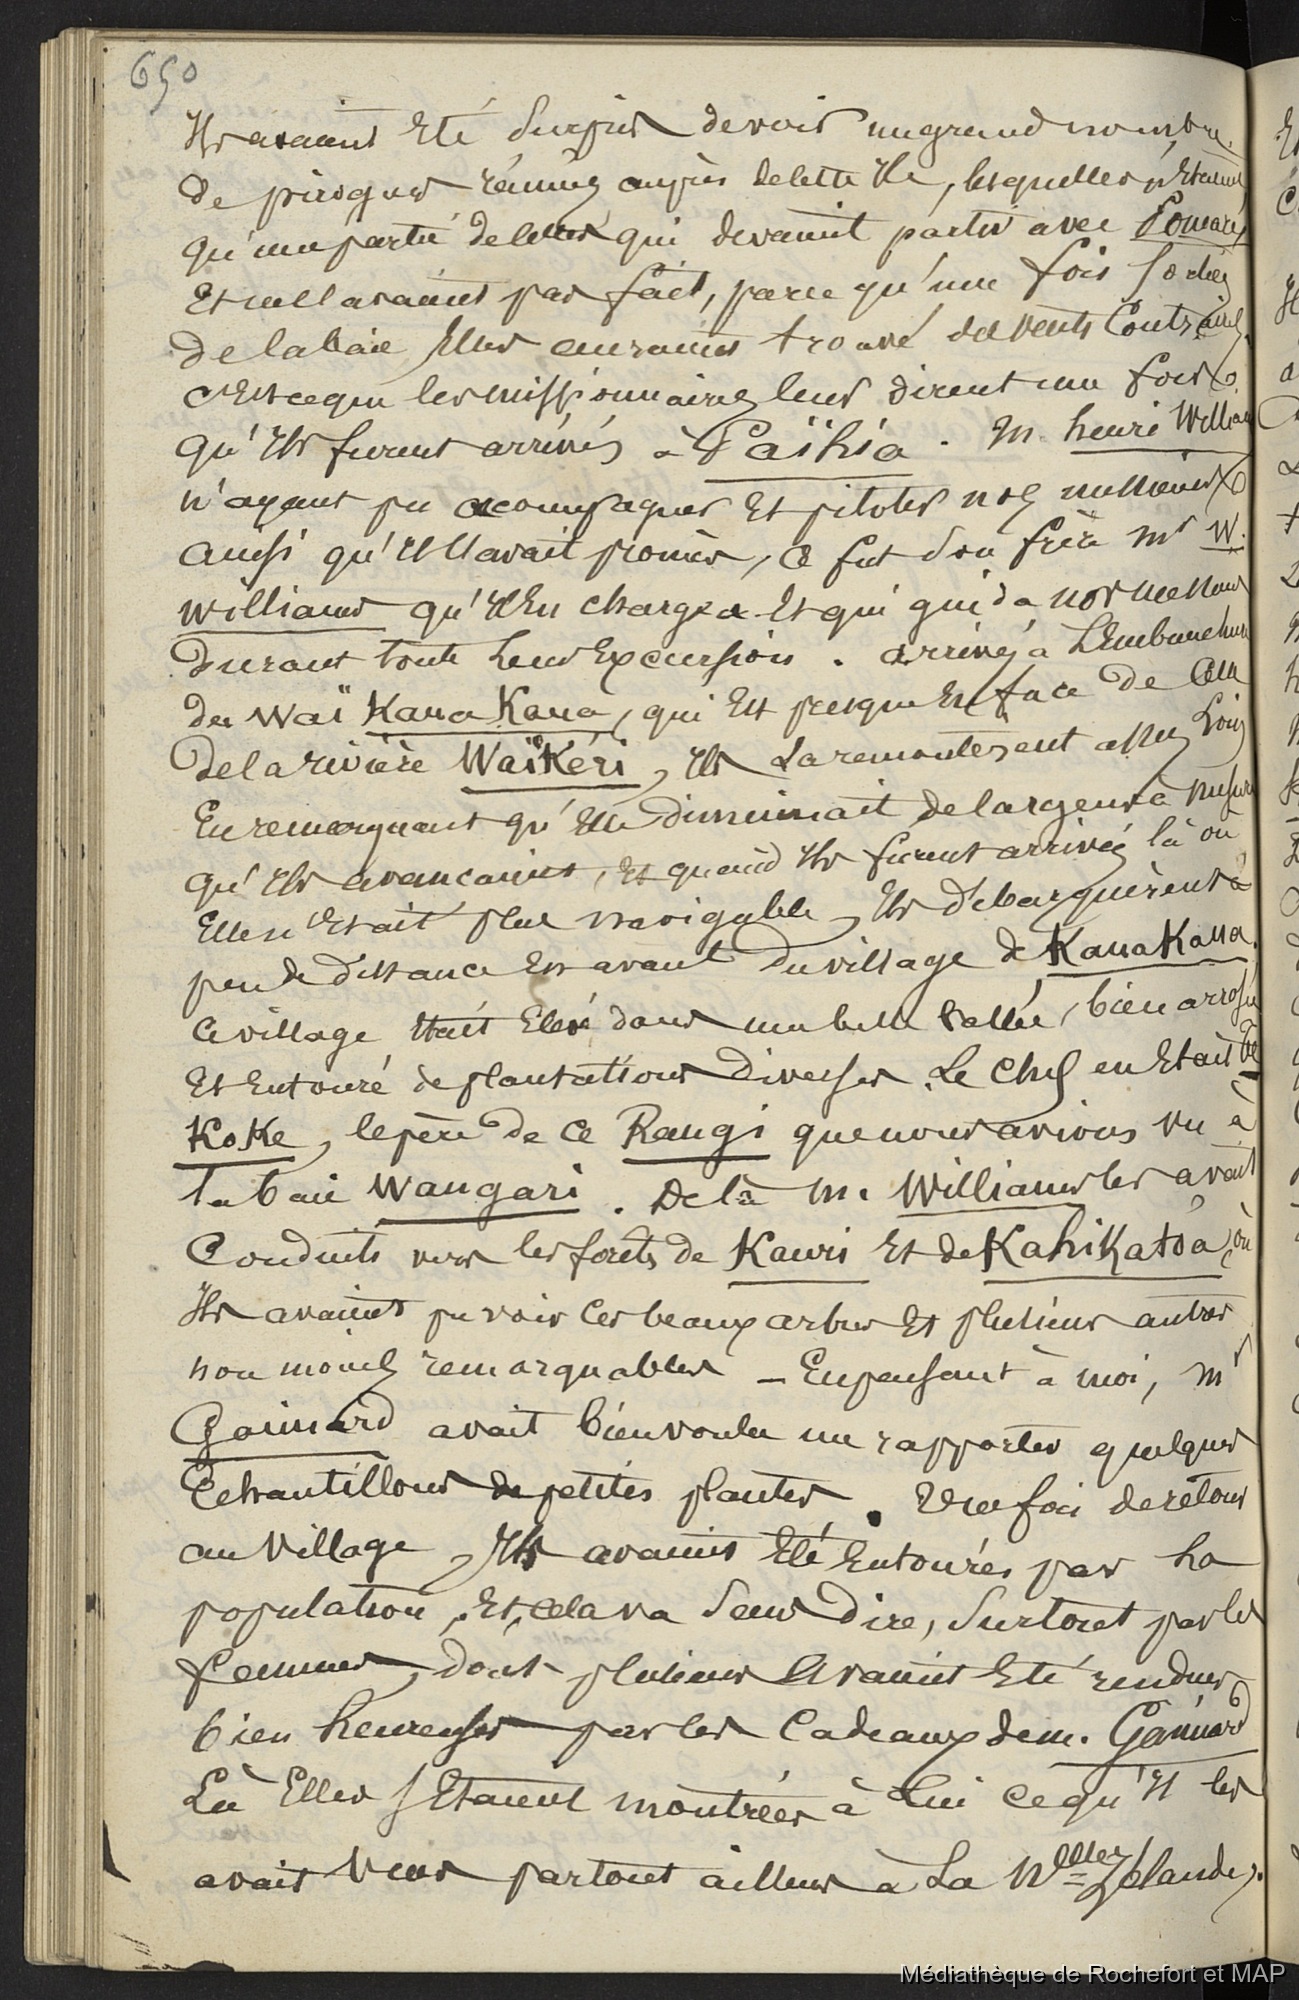 650
Ils avaient Eté Surpris de voir un grand nombre
de pirogues réunies auprès de cette Ile, lesquelles n'Etaient
qu'une partie de celles qui devaient partir avec Pomaré
Et ne l'avaient pas fait, parce qu'une fois Sorties
de la baie Elles auraient trouvé des vents Contraires.
C'Est ce que les missionnaires leur dirent une fois
qu'Ils furent arrivés à Païhia. M. henri William
n'ayant pu acompagner Et piloter nos messieurs
ainsi qu'Il l'avait promis, Ce fut Son frère Mr W.
Williams qu'Il En chargea Et qui guida nos messieurs
Durant toute leur Excursion. arrivés à L'Embouchure
du Waï Kaua Kaua, qui Est presque En face de Celle
De la rivière WaïKéri, Ils La remontèrent assez Loin
En remarquant qu'Elle Diminuait de largeur à mesure
qu'Ils avancaient, Et quand Ils furent arrivés là où
Elle n'Etait plus navigable, Ils débarquèrent à
peu de distance En avant Du village de KauaKaua.
Ce village Etait Elevé dans une belle Vallée, bien arrosée
Et Entouré de plantations Diverses. Le Chef en Etait Te
KoKe, le père de Ce Rangi que nous avions vu à
la baie Wangari. De là M. Williams les avait
Conduits vers les forêts de Kauris Et de KahiKatoa, où
Ils avaient pu voir Ces beaux arbres Et plusieurs autres
non moins remarquables – En pensant à moi, Mr
Gaimard avait bien voulu me rapporter quelques
Echantillons de petites plantes. Une fois de retour
au Village, Ils avaient Eté Entourés par La
population, Et, cela va Sans Dire, Surtout par les
femmes, dont plusieurs Avaient Eté rendues
bien heureuses par les Cadeaux de m. Gaimard
Là Elles S'Etaient montrées à Lui Ce qu'Il les
avait Vues partout ailleurs à La Nlle Zélande.
Médiathèque de Rochefort et MAP